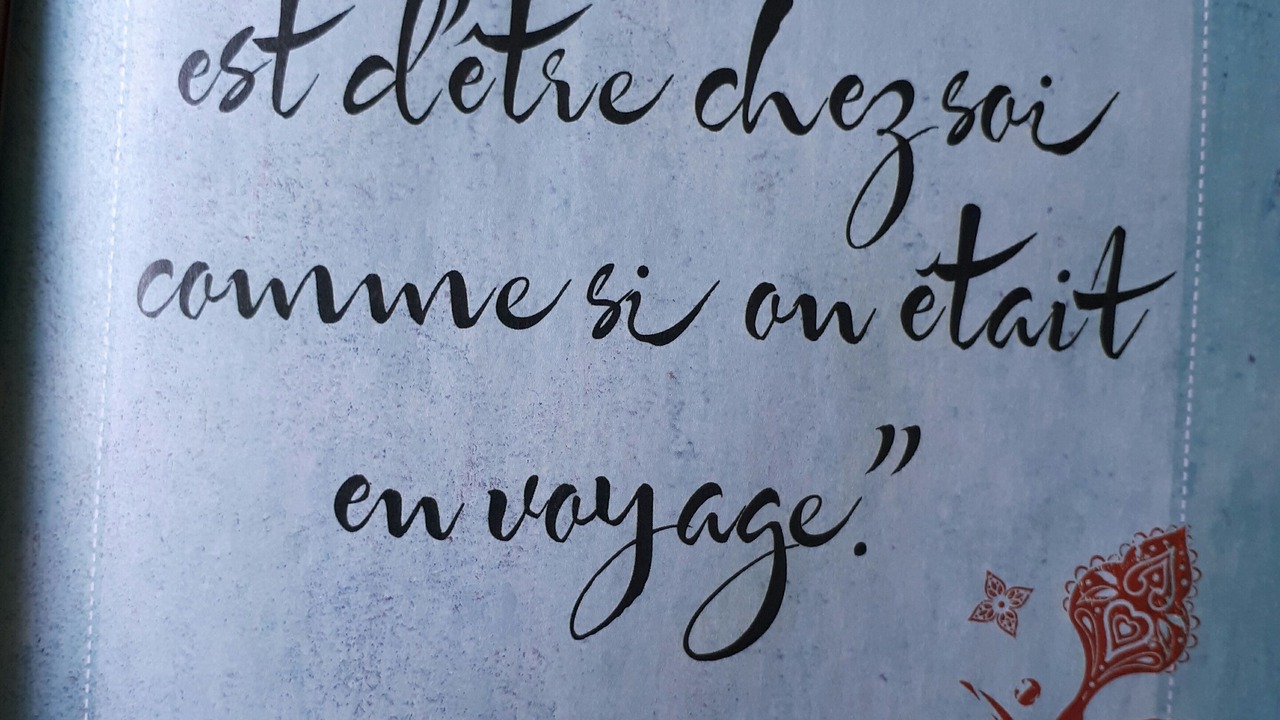 est d'être chez soi
comme si on était
en voyage.”